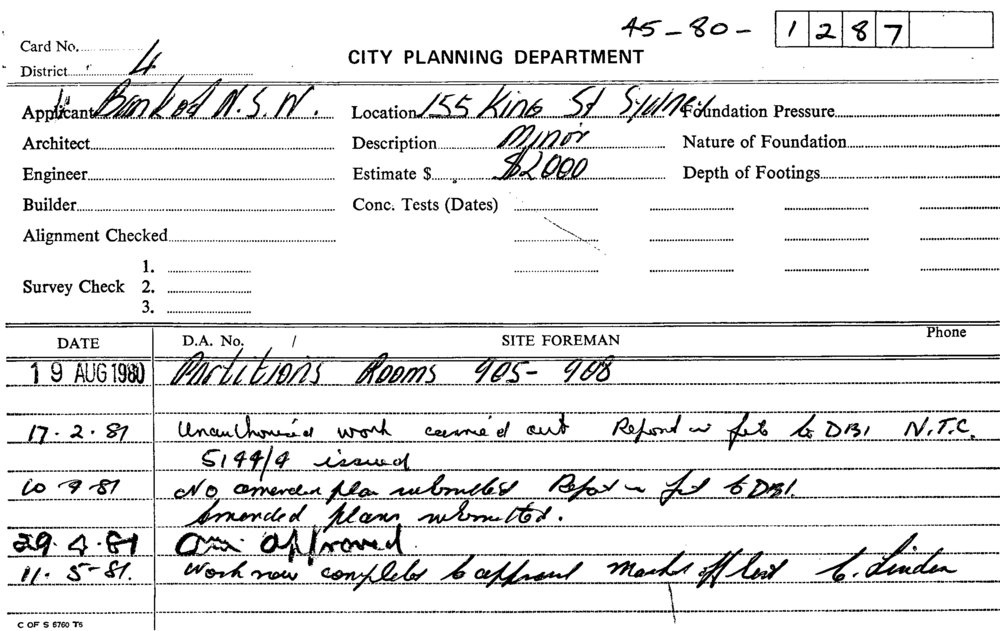 45-80- 1287
Card No.
District 4
CITY PLANNING DEPARTMENT
Applicant Bank of N.S.W. Location 155 King St Sydney Foundation Pressure
Architect Description Minor Nature of Foundation
Engineer Estimate $ $2000 Depth of Footings
Builder Conc. Tests (Dates)
Alignment Checked
1.
Survey Check 2.
3.
DATE D.A. No. SITE FOREMAN Phone
19 AUG 1980 Partitions Rooms 905-908
17.2.81 Unauthorised work carried out Report in file to DBI N.T.C.
5144/4 issued
No amended plan submitted Report in file to DBI.
Amended plans submitted.
29.4.81 approved.
11.5-81. Work now completed to approval Marked off list
C OF S 6760 T5